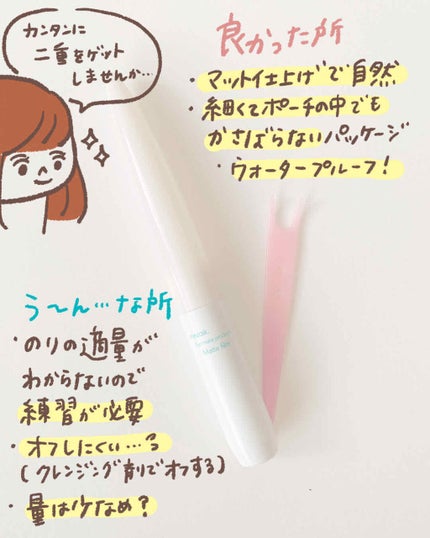 カンタンに
二重をゲット
しませんか…
良かった所
・マット仕上げで自然
・細くてポーチの中でも
かさばらないパッケージ
・ウォータープルーフ!
う〜ん…な所
・のりの適量が
わからないので
練習が必要
・オフしにくい…?
(クレンジング剤でオフする)
・量は少なめ?